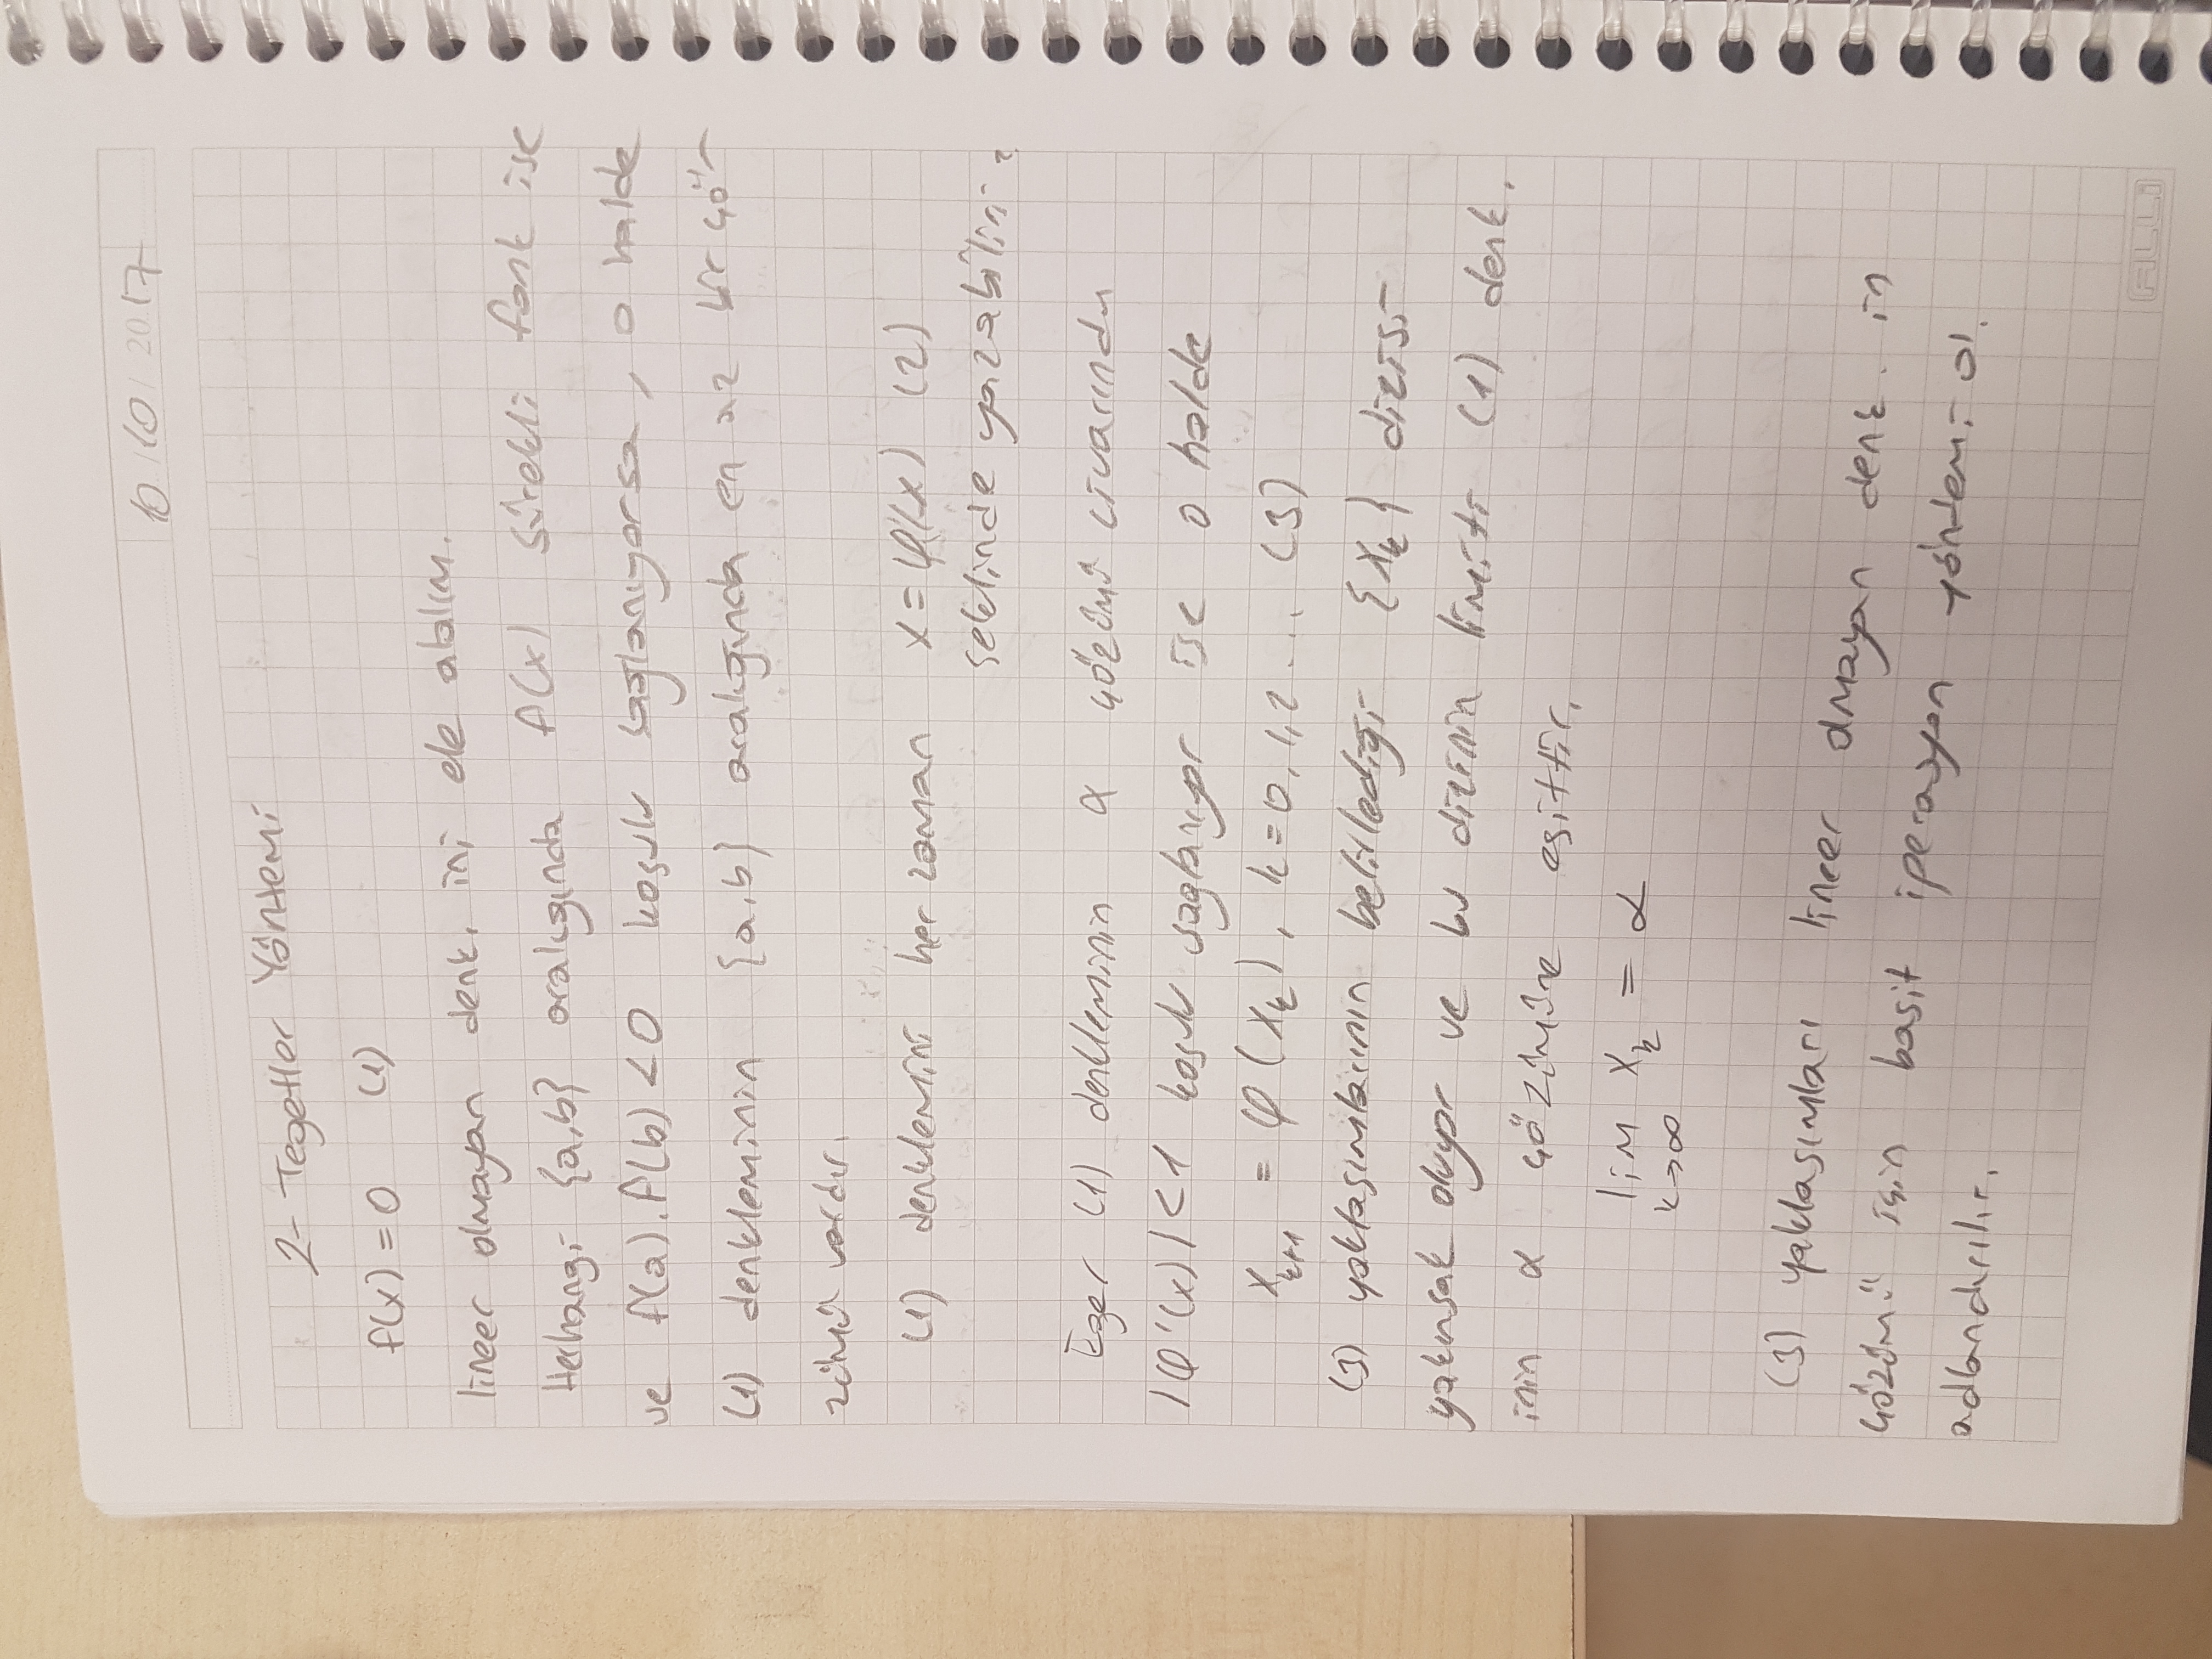 10/10/2017
2- Tegetler Yöntemi
f(x) = 0 (1)
lineer olmayan denk. ini ele alalım.
Herhangi {a,b} aralığında f(x) sürekli fonk ise
ve f(a).f(b) < 0 koşulu sağlanıyorsa, o halde
(1) denkleminin {a,b} aralığında en az bir çö-
zümü vardır.
(1) denklemini her zaman x = φ(x) (2)
şeklinde yazabiliriz.
Eğer (1) denkleminin α çözümü civarında
|φ'(x)| < 1 koşulu sağlanıyor ise o halde
x_{k+1} = φ(x_k), k = 0,1,2... (3)
(3) yaklaşımlarının belirlediği {x_k} dizisi
yakınsak oluyor ve bu dizinin limiti (1) denk.
inin α çözümüne eşittir.
lim x_k = α
k→∞
(3) yaklaşımları lineer olmayan denk. in
çözümü için basit iperasyon yöntemi ol.
adlandırılır.
ALLi